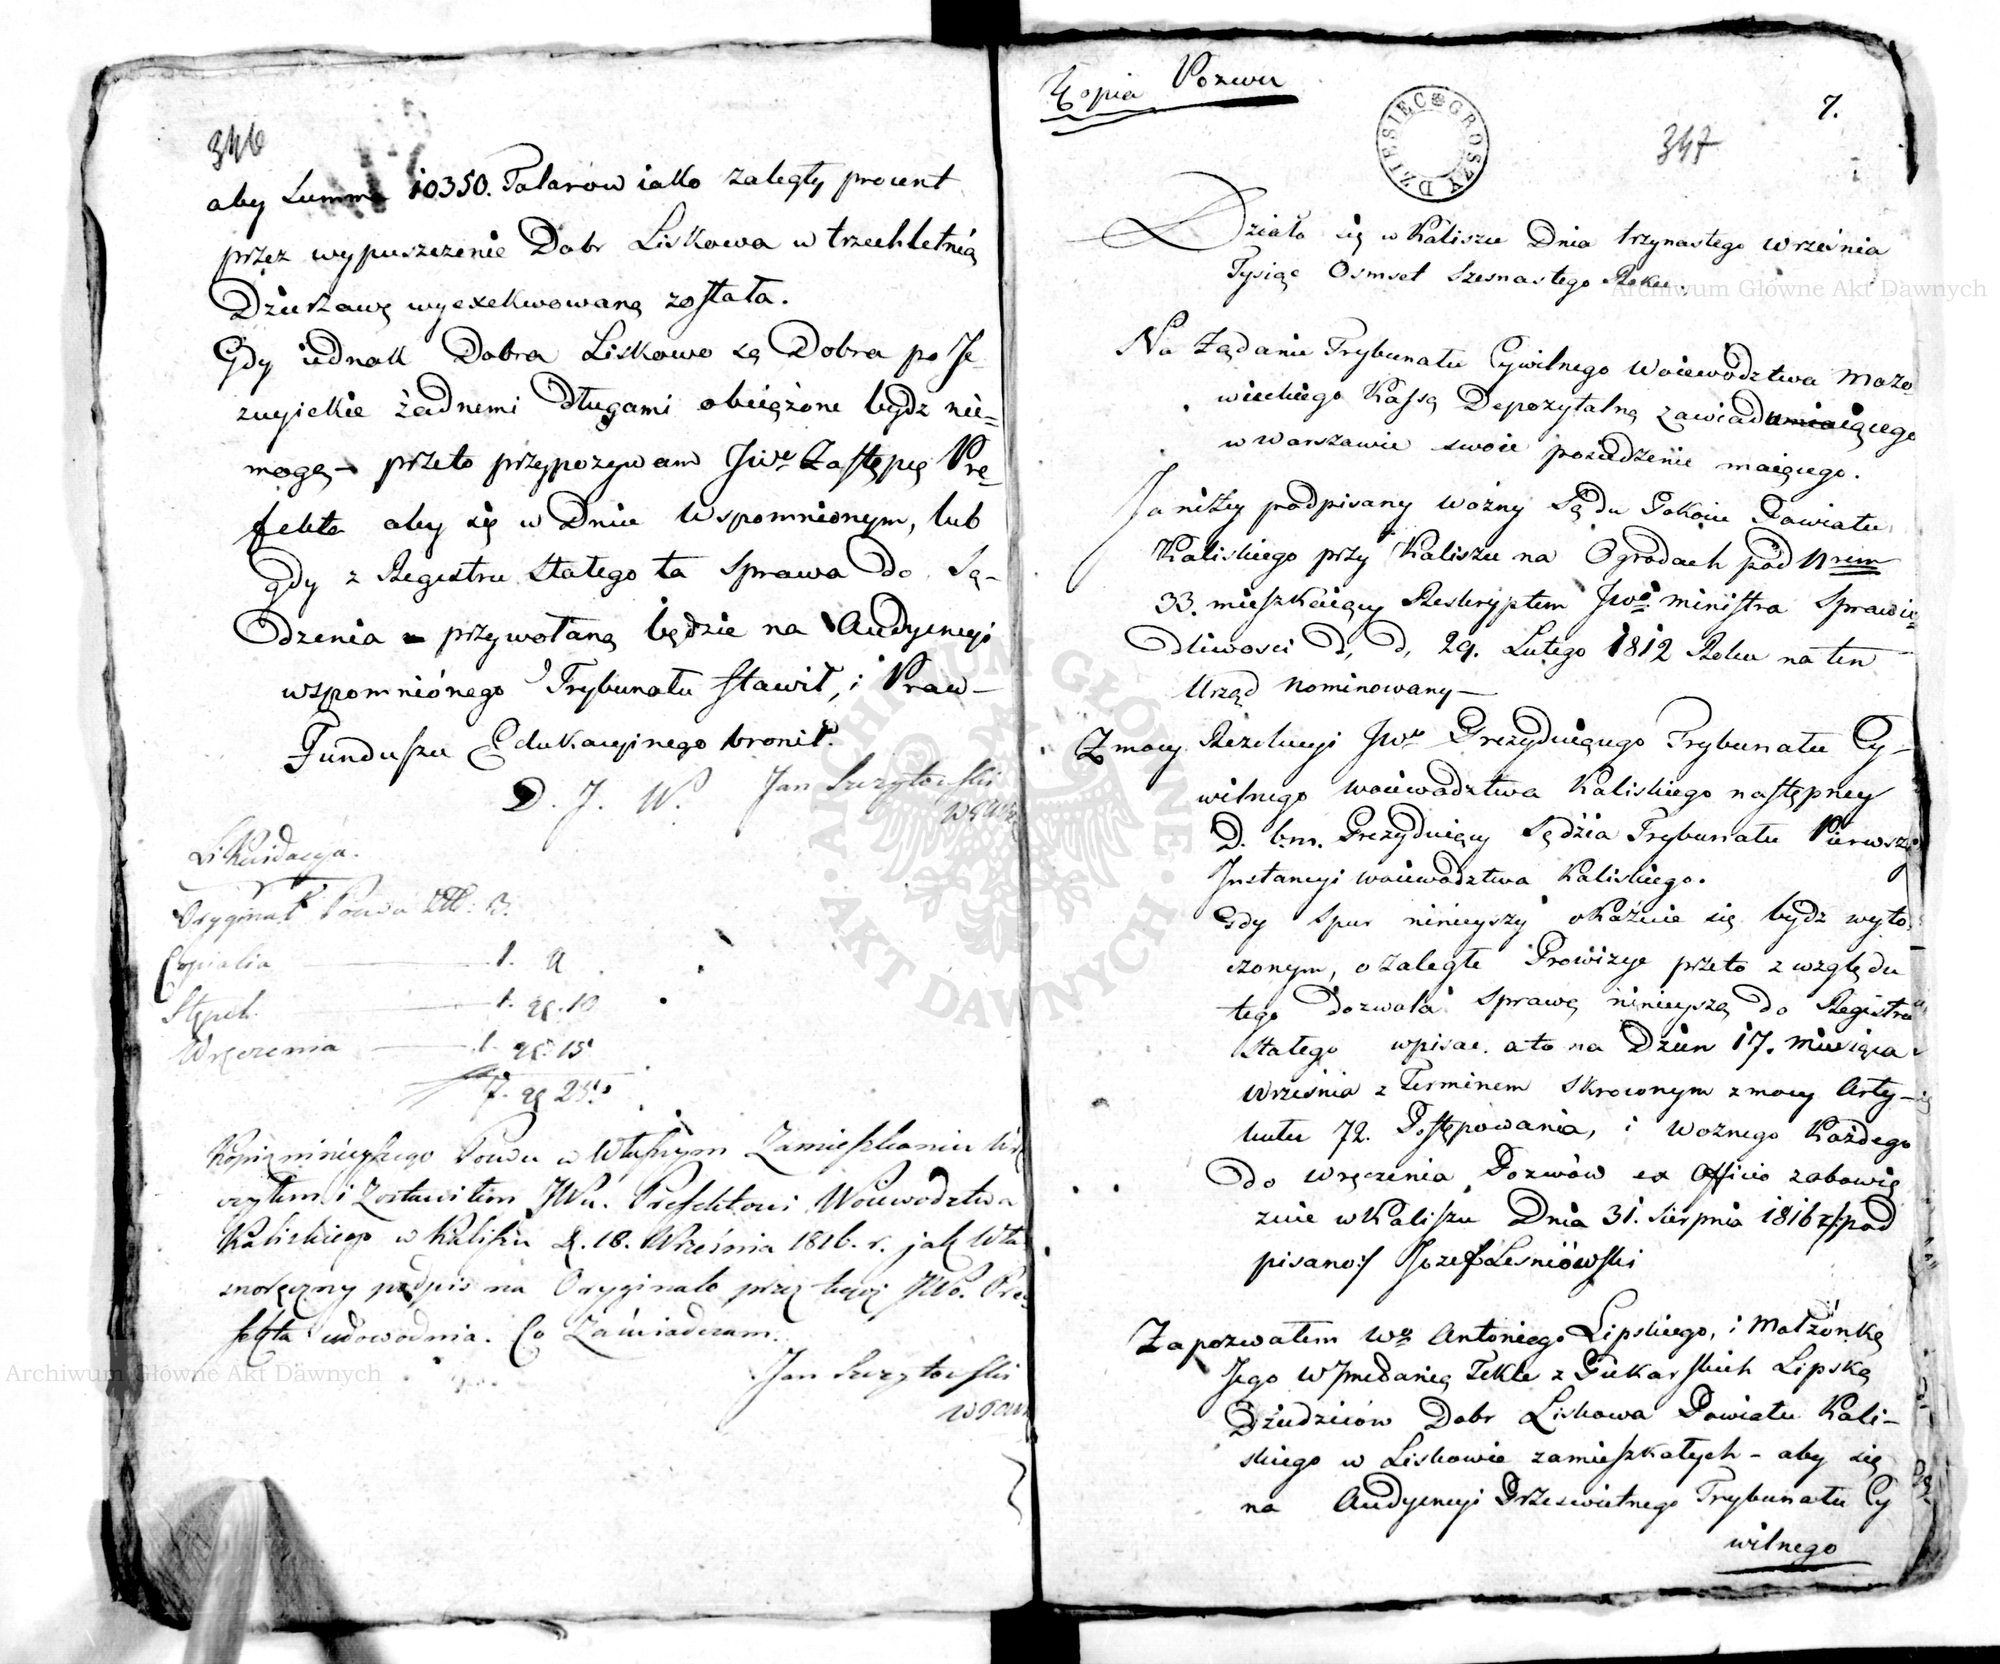 346
aby Summa 10350. Talarow iako zaległy procent
przez wypuszczenie Dobr Liskowa w trzechletnią
Dzierżawę wyexekwowaną została.
Gdy iednak Dobra Liskowo są Dobra po Je-
zuickie żadnemi długami obciążone bydz nie-
mogą – przeto przypozywam JWo Zastępcę Pre-
fekta aby się w Dniu wspomnionym, lub
gdy z Regestru Stałego ta Sprawa do Są-
dzenia – przywołaną będzie na Audyencyi
wspomnionego Trybunału stawił, i Praw –
Funduszu Edukacyinego bronił.
D. J. W. Jan Szczytowski
Likwidacya.
Oryginał Pozwu 3.
Copialia 1.
Stępel. 1. 10
Wręczenia 1. 15
7. 25.
Kopią ninieyszego Pozwu w własnym Zamieszkaniu wrę
czyłem i Zostawiłem JWu. Prefektowi Woiewodztwa
Kaliskiego w Kaliszu d. 18. Września 1816. r. jak wła
snoręczny podpis na Oryginale przez tegoż JWo. Pre
fekta udowodnia. Co Zaświadczam.
Jan Szczytowski
Kopia Pozwu
7.
DZIESIĘC GROSZY
347
Działo się w Kaliszu Dnia trzynastego Września
Tysiąc Osmset Szesnastego Roku.
Na Żądanie Trybunału Cywilnego Woiewodztwa Mazo-
wieckiego Kassą Depozytalną zawiadumiaiącego
w Warszawie swoie posiedzenie maiącego.
Ja niżey podpisany Wozny Sądu Pokoiu Powiatu
Kaliskiego przy Kaliszu na Ogrodach pod Nrem
33. mieszkaiący Reskryptem JWo Ministra Sprawie-
dliwosci d. d. 29. Lutego 1812 Roku na ten
Urząd nominowany –
Z mocy Rezolucyi JWo Prezyduiącego Trybunału Cy-
wilnego Woiewodztwa Kaliskiego następney
D. b.m. Prezyduiący Sędzia Trybunału Pierwszey
Instancyi Woiewodztwa Kaliskiego.
Gdy Spur ninieyszy okaźuie się bydz wyto-
czonym, o zaległe Prowizye przeto z względu
tego dozwala Sprawę ninieyszą do Regestru
Stałego wpisac. ato na Dzien 17. Miesiąca
Września z Terminem Skroconym z mocy Arty-
kułu 72. Postępowania, i Woznego Każdego
do wręczenia Pozwów ex Officio zobowię
zuie w Kaliszu Dnia 31. Sierpnia 1816 r/: pod
pisano:/ Jozef Lesniówski
Zapozwałem Wo Antoniego Lipskiego, i Małżonkę
Jego Tekle z Piekarskich Lipską
Dziedziców Dobr Liskowa Powiatu Kali-
skiego w Liskowie zamieszkałych – aby się
na Audyencyi Prześwietnego Trybunału Cy
wilnego
Archiwum Główne Akt Dawnych
Archiwum Główne Akt Dawnych
ARCHIWUM GŁÓWNE AKT DAWNYCH